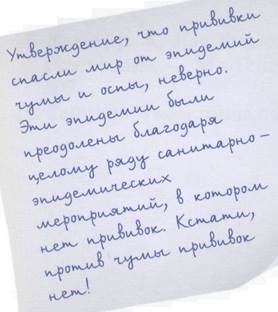 Утверждение, что прививки
спасли мир от эпидемий
чумы и оспы, неверно.
Эти эпидемии были
преодолены благодаря
целому ряду санитарно-
эпидемических
мероприятий, в котором
нет прививок. Кстати,
против чумы прививок
нет!